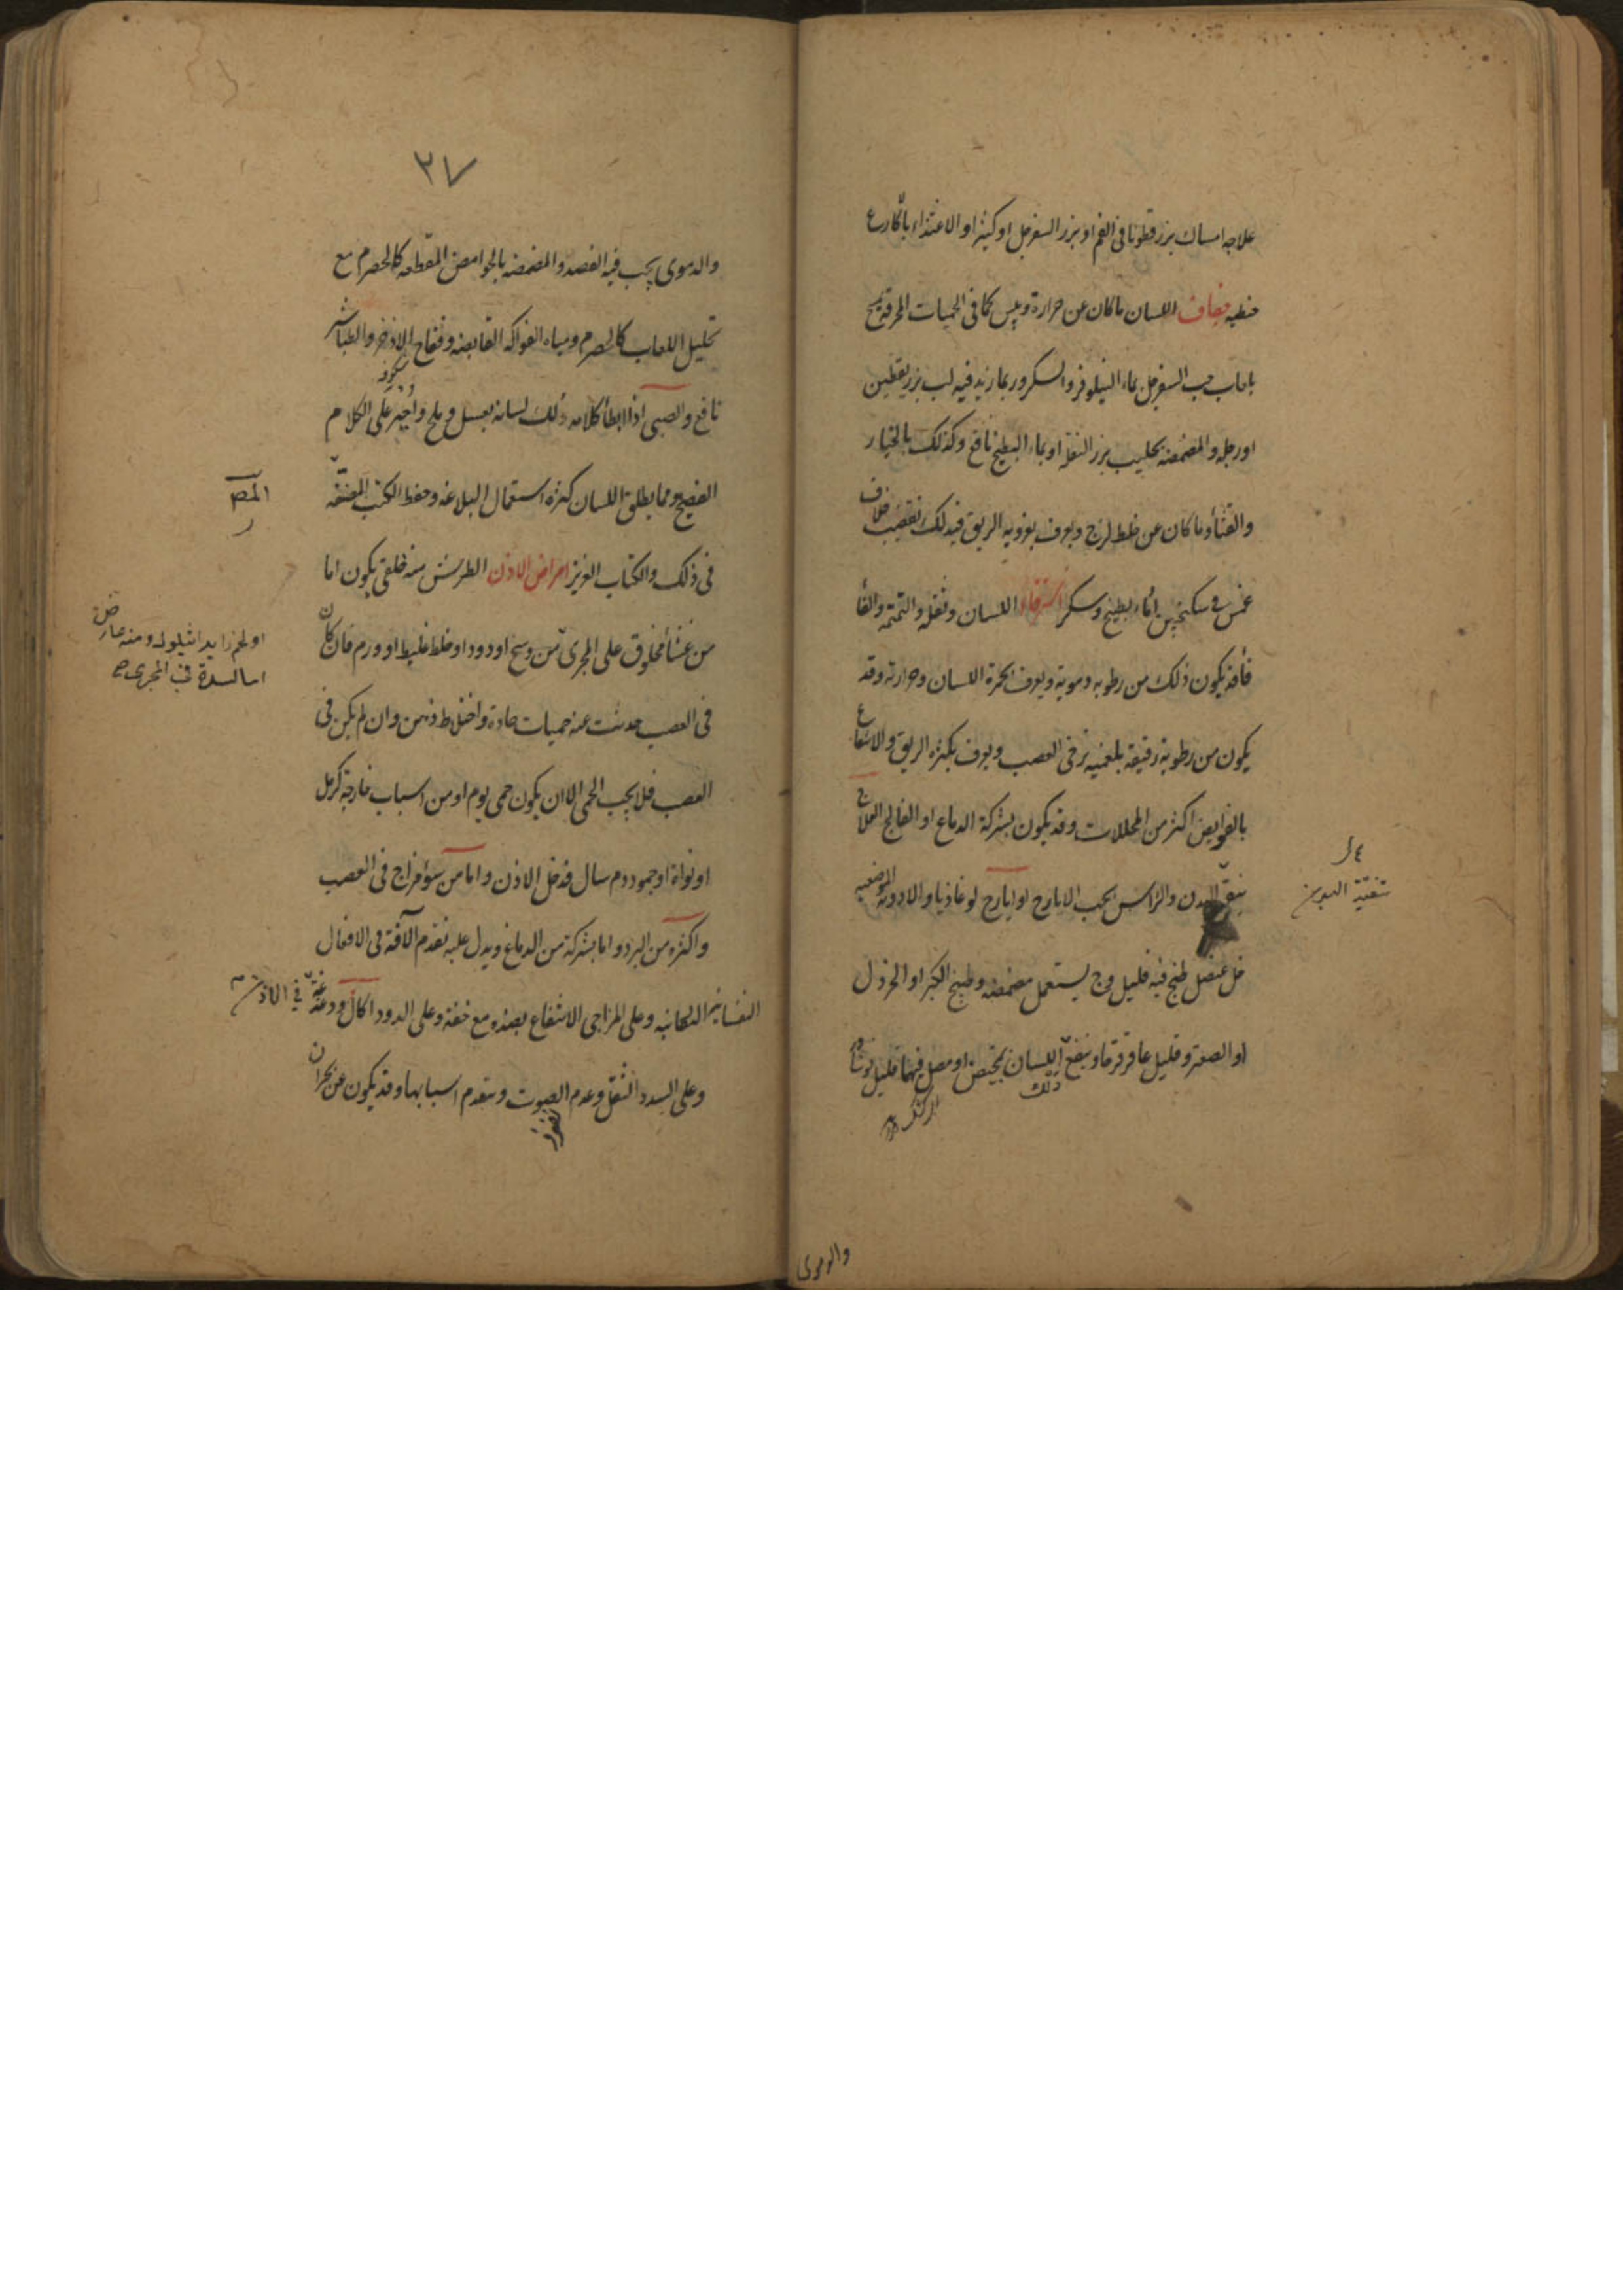 علاجه امساك بزر قطونا فى الفم او بزر السفرجل او كثيرا او الاغتذاء باكارع
حنطيه جفاف اللسان ما كان عن حرارة ويبس كما فى الحميات المحرقة يمسح
بلعاب حب السفرجل بماء النيلوفر والسكر وربما زيد فيه لب بزر يقطين
اورجله والمضمضه بحليب بزر البقلة او بماء البطيخ نافع وكذلك بالخيار
والقثأ وما كان عن خلط لزج ويعرف بغرويه الريق فيدلك بقضيب خلاف
غمس فى سكنجبين او ماء بطيخ وسكر استرخاء اللسان وثقله والتمتمه والفأ
فأ قد يكون ذلك من رطوبه دمويه ويعرف بحمرة اللسان وحرارته وقد
يكون من رطوبة رقيقة بلغميه ترخى العصب ويعرف بكثرة الريق والانتفاع
بالقوابض اكثر من المحللات وقد يكون بشركة الدماغ او الفالج العلاج
ينقى البدن والراس بحب الايارج او ايارج لوغاذيا والادوية الموضعيه
تنقية البدن
خل عنصل طبخ فيه قليل وج يستعمل مضمضه وطبيخ الكبر او الخردل
او الصعتر وقليل عاقرقرحا وينفع اللسان بمخيض او مصل فيهما قليل نوشادر
دلك
والدموى
٣٧
والدموى يجب فيه الفصد والمضمضه بالحوامض المقطعه كالحصرم مع
تحليل اللعاب كالحصرم ومياه الفواكه القابضه وفقاح الاذخر والطباشير
نافع والصبى اذا ابطأ كلامه دلك لسانه بعسل وملح واجبر على الكلام
الفصيح ومما يطلق اللسان كثرة استعمال البلاغه وحفظ الكتب المصنفه
المص
فى ذلك والكتاب العزيز امراض الاذن الطرش منه خلقى يكون اما
من غشأ مخلوق على المجرى من وسخ او دود او خلط غليظ او ورم فان كان
او لحم زايد اثيلول ومنه عارض
اما لسدة فى المجرى صح
فى العصب حدثت عنه حميات حادة واختلاط ذهن وان لم يكن فى
العصب فلا يجب الحمى الا ان يكون حمى يوم او من اسباب خارجة كرمل
او نواة او جمود دم سال فدخل الاذن واما من سؤ مزاج فى العصب
واكثره من البرد واما بشركة من الدماغ ويدل عليه تقدم الآفة فى الافعال
النفسانيه الثلاثيه وعلى المزاجى الانتفاع بضده مع خفة وعلى الدود اكال ودغدغة فى الاذن
وعلى السدد الثقل وعدم الصوت وتقدم اسبابها وقد يكون عن بحران